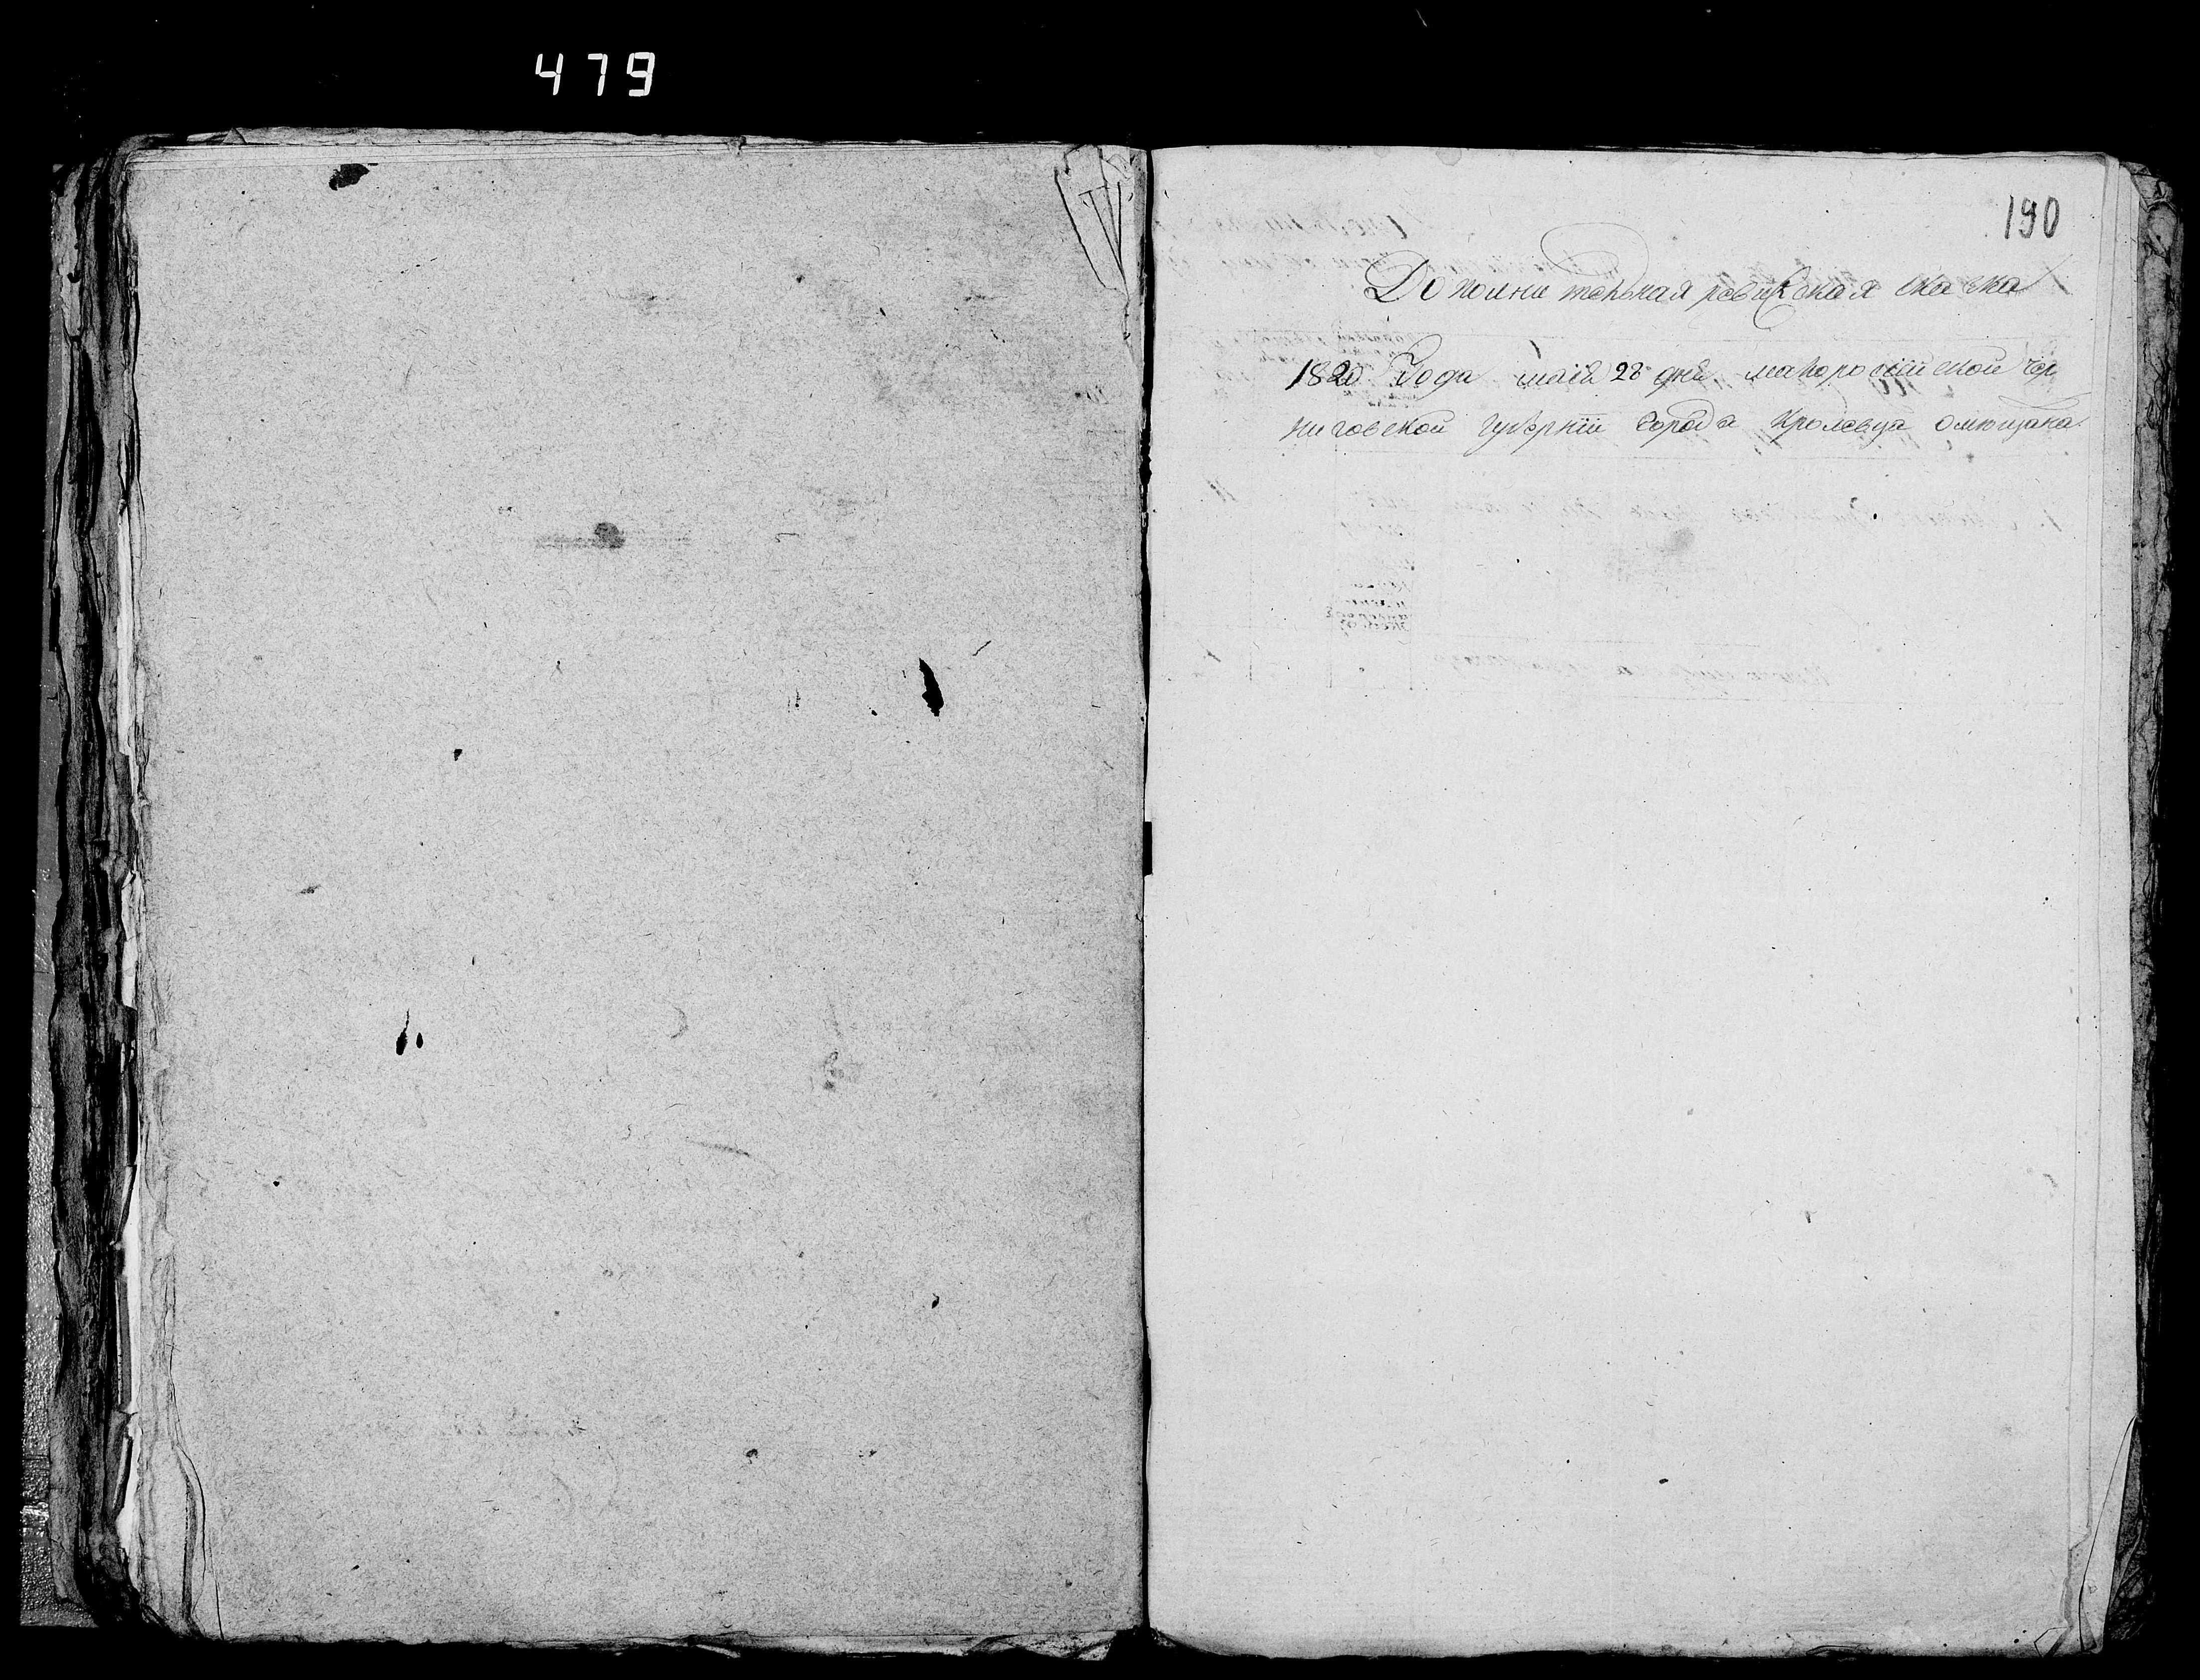 479
190
Дополнительная ревизская скаска
1820 Года маия 28 дня малоросійской Чер
ниговской губерніи города Кролевца омющанах